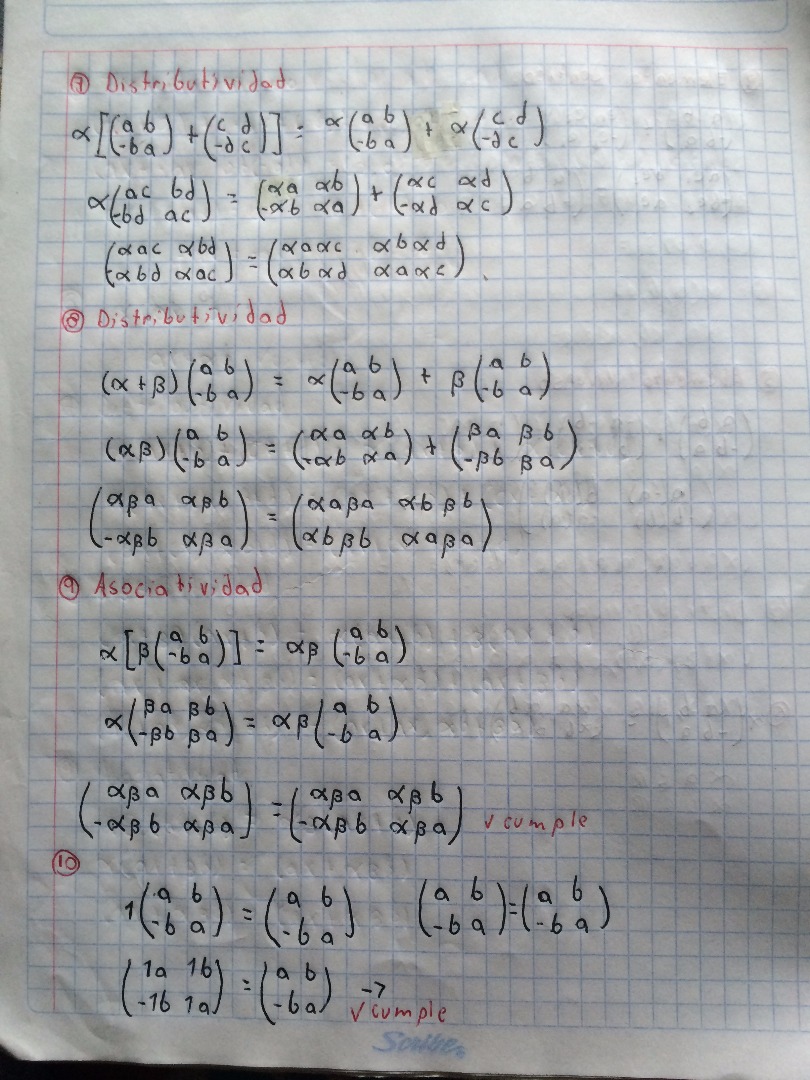 ⑦ Distributividad
α[(a b / -b a) + (c d / -d c)] = α(a b / -b a) + α(c d / -d c)
α(ac bd / -bd ac) = (αa αb / -αb αa) + (αc αd / -αd αc)
(αac αbd / -αbd αac) = (αaαc αbαd / αbαd αaαc).
⑧ Distributividad
(α+β)(a b / -b a) = α(a b / -b a) + β(a b / -b a)
(αβ)(a b / -b a) = (αa αb / -αb αa) + (βa βb / -βb βa)
(αβa αβb / -αβb αβa) = (αaβa αbβb / αbβb αaβa)
⑨ Asociatividad
α[β(a b / -b a)] = αβ(a b / -b a)
α(βa βb / -βb βa) = αβ(a b / -b a)
(αβa αβb / -αβb αβa) = (αβa αβb / -αβb αβa) √ cumple
⑩
1(a b / -b a) = (a b / -b a) (a b / -b a) = (a b / -b a)
(1a 1b / -1b 1a) = (a b / -b a) → √ cumple
Scribe